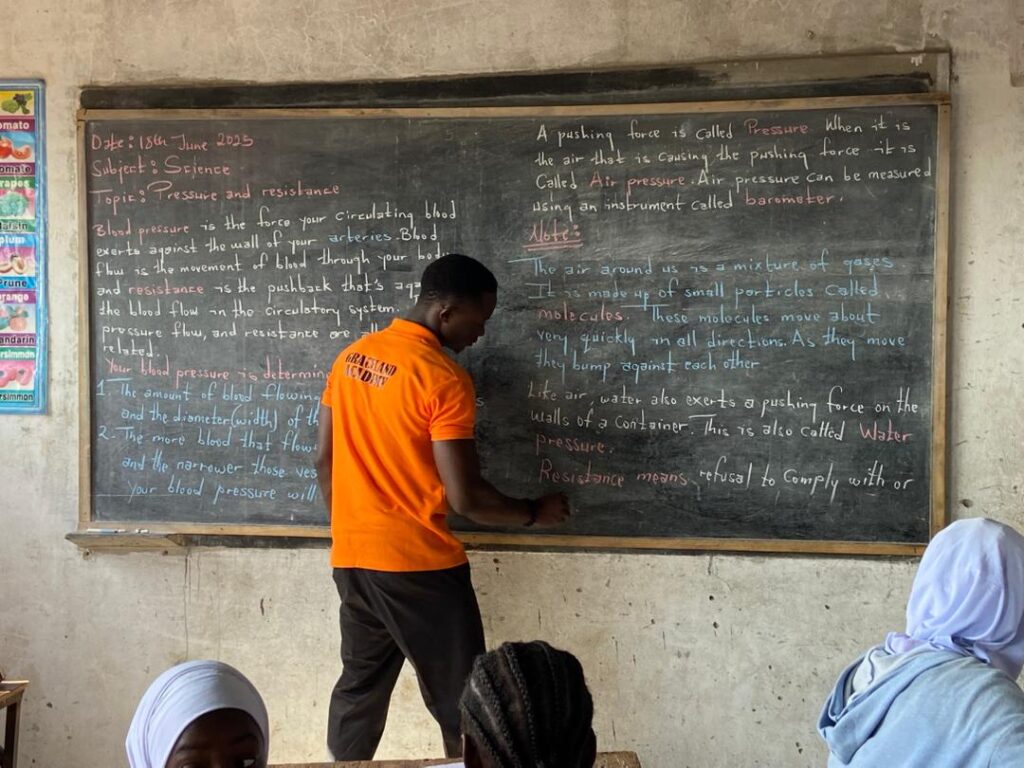 Date: 18th June 2025
Subject: Science
Topic: Pressure and resistance
Blood pressure is the force your circulating blood
exerts against the wall of your arteries. Blood
flow is the movement of blood through your
and resistance is the pushback that's
the blood flow in the circulatory system.
pressure flow, and resistance are
related.
Your blood pressure is
1. The amount of blood flowing
and the diameter (width) of
2. The more blood that
and the narrower those
your blood pressure will
A pushing force is called Pressure. When it is
the air that is causing the pushing force it is
Called Air pressure. Air pressure can be measured
using an instrument called barometer.
Note:
The air around us is a mixture of gases
It is made up of small particles Called
molecules. These molecules move about
very quickly in all directions. As they move
they bump against each other
Like air, water also exerts a pushing force on the
walls of a container. This is also called Water
pressure.
Resistance means refusal to comply with or
GRACELAND
ACADEMY
omato
omato
rapes
aisin
plum
Prune
orange
andarin
ersimmon
ersimmon